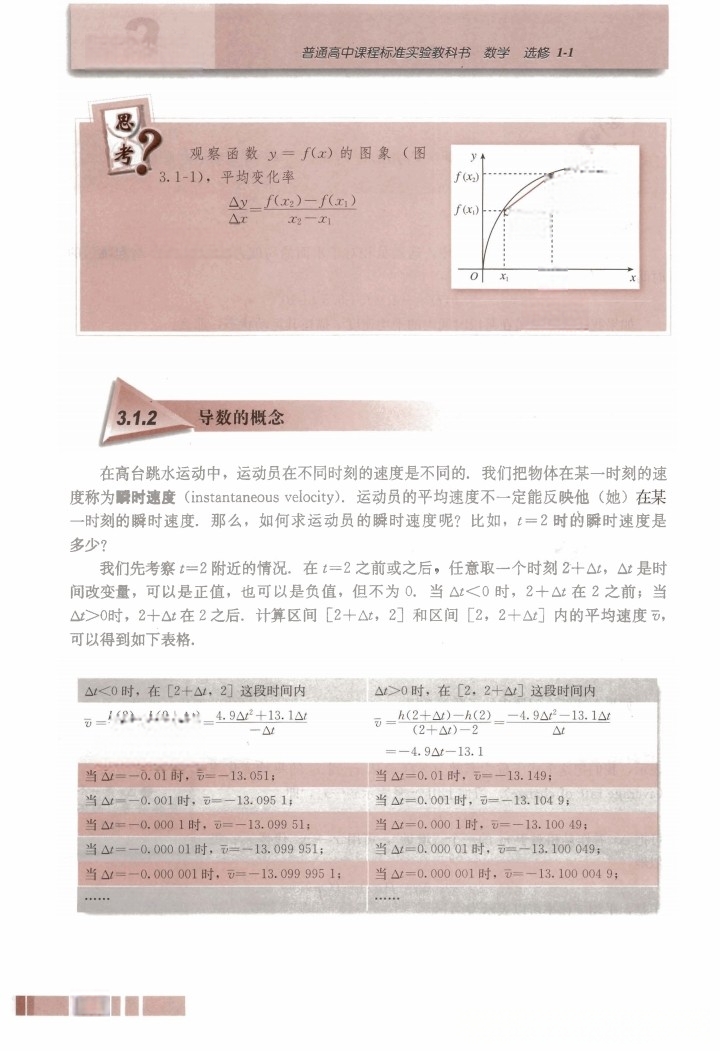 普通高中课程标准实验教科书 数学 选修 1-1
思考
?
观察函数 y = f(x) 的图象（图
3.1-1），平均变化率
Δy/Δx = (f(x₂)-f(x₁))/(x₂-x₁)
y
f(x₂)
f(x₁)
O x₁ x
3.1.2 导数的概念
在高台跳水运动中，运动员在不同时刻的速度是不同的．我们把物体在某一时刻的速
度称为瞬时速度（instantaneous velocity）．运动员的平均速度不一定能反映他（她）在某
一时刻的瞬时速度．那么，如何求运动员的瞬时速度呢？比如，t=2 时的瞬时速度是
多少？
我们先考察 t=2 附近的情况．在 t=2 之前或之后，任意取一个时刻 2+Δt，Δt 是时
间改变量，可以是正值，也可以是负值，但不为 0．当 Δt<0 时，2+Δt 在 2 之前；当
Δt>0时，2+Δt 在 2 之后．计算区间［2+Δt，2］和区间［2，2+Δt］内的平均速度 v̄，
可以得到如下表格．
Δt<0 时，在［2+Δt，2］这段时间内 Δt>0 时，在［2，2+Δt］这段时间内
v̄ = = (4.9Δt²+13.1Δt)/(-Δt) v̄ = (h(2+Δt)-h(2))/((2+Δt)-2) = (-4.9Δt²-13.1Δt)/Δt
=-4.9Δt-13.1
当 Δt=-0.01 时，v̄=-13.051； 当 Δt=0.01 时，v̄=-13.149；
当 Δt=-0.001 时，v̄=-13.095 1； 当 Δt=0.001 时，v̄=-13.104 9；
当 Δt=-0.000 1 时，v̄=-13.099 51； 当 Δt=0.000 1 时，v̄=-13.100 49；
当 Δt=-0.000 01 时，v̄=-13.099 951； 当 Δt=0.000 01 时，v̄=-13.100 049；
当 Δt=-0.000 001 时，v̄=-13.099 995 1； 当 Δt=0.000 001 时，v̄=-13.100 004 9；
…… ……